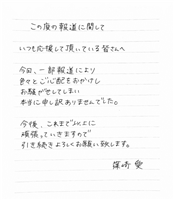 この度の報道に関して
いつも応援して頂いている皆さんへ
今日、一部報道により
色々とご心配をおかけし
お騒がせしてしまい
本当に申し訳ありませんでした。
今後、これまで以上に
頑張っていきますので
引き続きよろしくお願い致します。
篠崎 愛